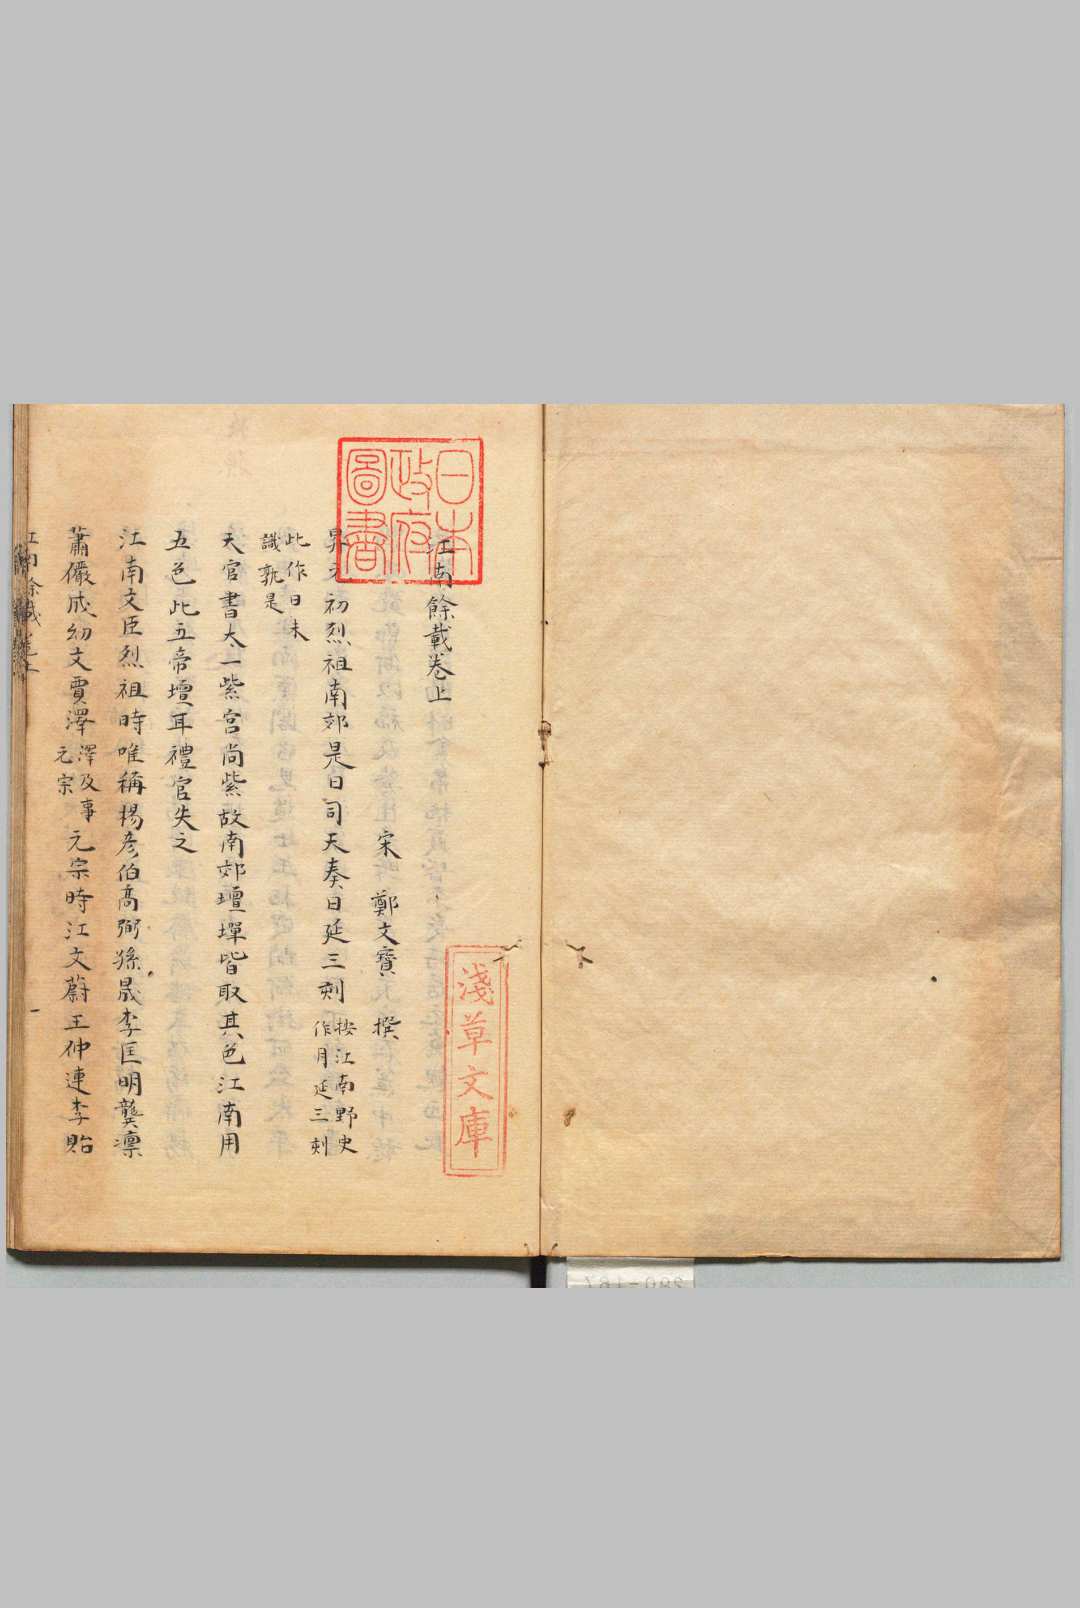 江南餘載卷上
宋 鄭文寶 撰
昇元初烈祖南郊是日司天奏日延三刻 按江南野史作月延三刻
此作日未識孰是
天官書太一紫宮尚紫故南郊壇墠皆取其色江南用
五色此五帝壇耳禮官失之
江南文臣烈祖時唯稱揚彥伯高弼孫晟李匡明龔凛
蕭儼成幼文賈澤 澤及事元宗 元宗時江文蔚王仲連李貽
江南餘載卷上
一
日本
政府
圖書
淺草文庫